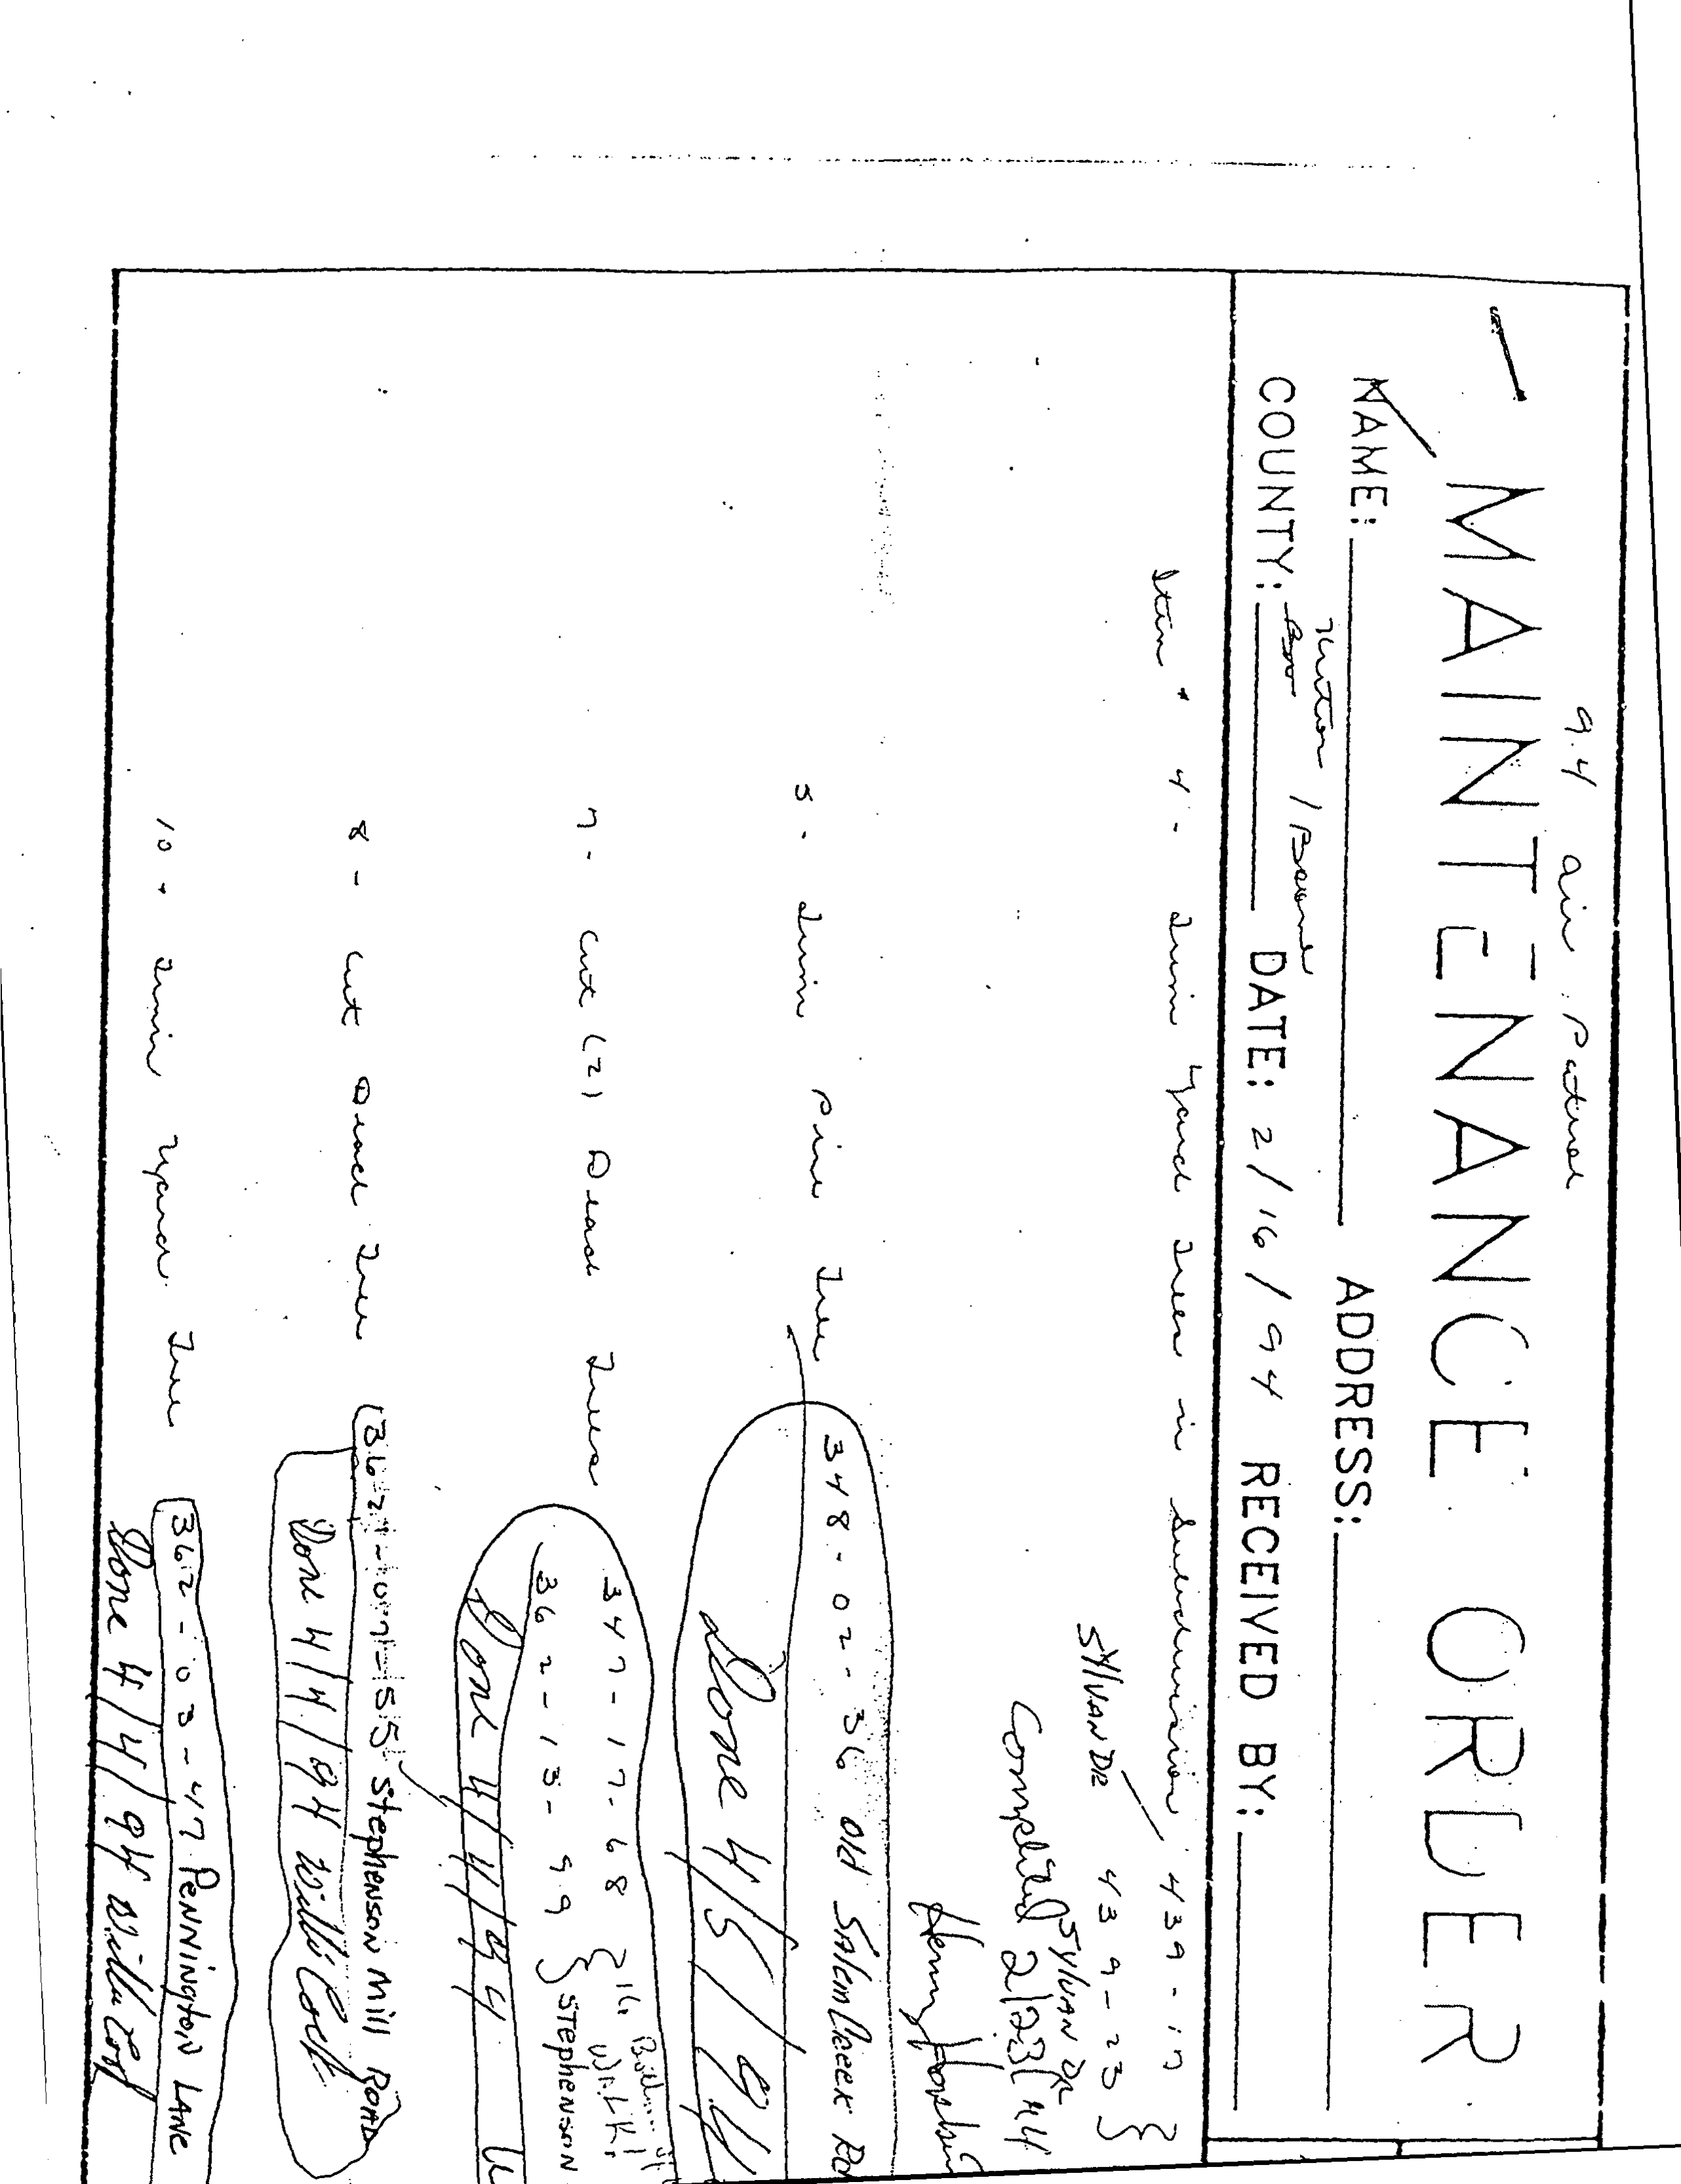 9.4 Air Patrol
MAINTENANCE ORDER
NAME: ADDRESS:
Kenton / Boone
COUNTY: DATE: 2/16/94 RECEIVED BY:
Item 4 - Trim Yard Trees in Subdivision 439-17
SYLVAN DR 439-23
SYLVAN DR
Completed 2/23/94
Henry
5 - Trim Pine Tree 348-02-36 Old Salem Creek Rd
Done 4/5/94
7 - Cut (2) Dead Trees 347-17-68
362-13-99 Stephenson
Done 4/4/94
8 - Cut Dead Tree 362-07-155 Stephenson Mill ROAD
Done 4/4/94
10 - Trim Yard Tree 362-03-47 PENNINGTON LANE
Done 4/4/94